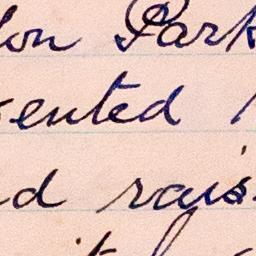 lon Park
ented
d rais